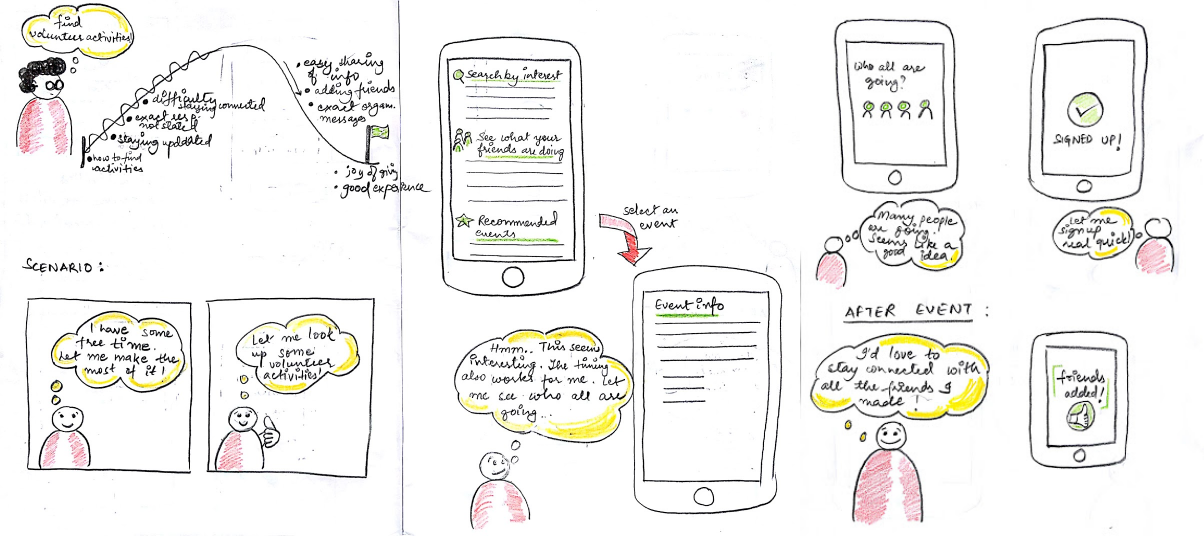 find
volunteer activities!
• easy sharing
of info
• adding friends
• exact organ.
messages
• difficulty
staying connected
• exact resp.
not stated
• staying updated
• how to find
activities
• joy of giving
• good experience
SCENARIO :
I have some
free time.
Let me make the
most of it!
Let me look
up some
volunteer
activities!
Search by interest
See what your
friends are doing
Recommended
events
select an
event
Event info
Hmm.. This seems
interesting. The timing
also works for me. Let
me see who all are
going...
Who all are
going?
Many people
are going.
Seems like a
good idea.
SIGNED UP!
Let me
sign up
real quick!
AFTER EVENT :
I'd love to
stay connected with
all the friends I
made !
friends
added!